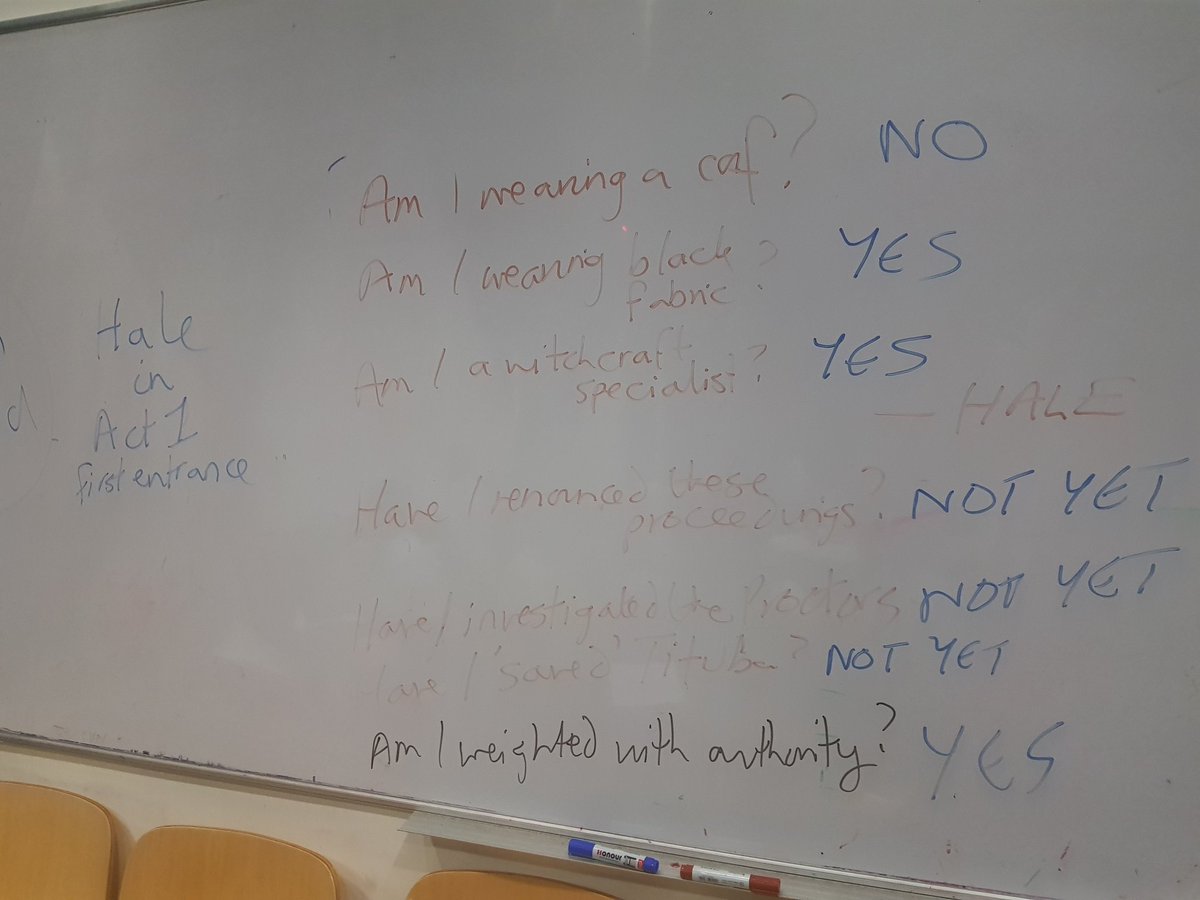 Hale
in
Act 1
first entrance
Am I wearing a coif? NO
Am I wearing black
fabric? YES
Am I a witchcraft
specialist? YES
— HALE
Have I renounced these
proceedings? NOT YET
Have I investigated the Proctors NOT YET
Have I 'saved' Tituba? NOT YET
Am I weighted with authority? YES